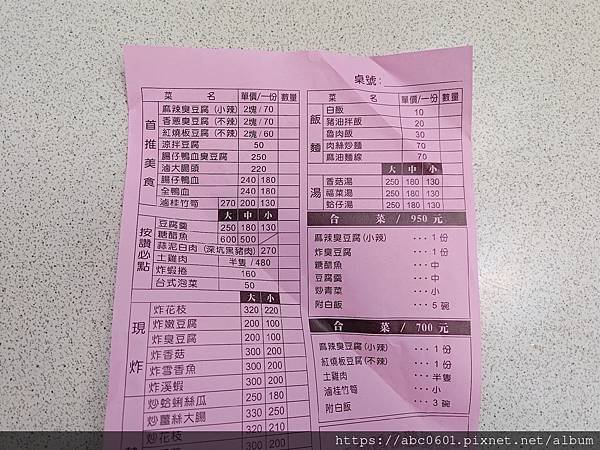 桌號:
菜 名 單價/一份 數量
首推美食
麻辣臭豆腐(小辣) 2塊/70
香蔥臭豆腐(不辣) 2塊/70
紅燒板豆腐(不辣) 2塊/60
涼拌豆腐 50
腸仔鴨血臭豆腐 250
滷大腸頭 220
腸仔鴨血 240 180
全鴨血 240 180
滷桂竹筍 270 200 130
大 中 小
按讚必點
豆腐羹 250 180 130
糖醋魚 600 500
蒜泥白肉(深坑黑豬肉) 270
土雞肉 半隻/480
炸蝦捲 160
台式泡菜 50
大 小
現炸
炸花枝 320 220
炸嫩豆腐 200 100
炸臭豆腐 200 100
炸香菇 300 200
炸雪香魚 300 200
炸溪蝦 300 200
炒蛤蜊絲瓜 250 180
炒薑絲大腸 330 250
炒花枝 320 210
300 200
菜 名 單價/一份 數量
飯麵
白飯 10
豬油拌飯 20
魯肉飯 30
肉絲炒麵 70
麻油麵線 70
大 中 小
湯
香菇湯 250 180 130
福菜湯 250 180 130
蛤仔湯 250 180 130
合 菜 / 950 元
麻辣臭豆腐(小辣) ···1份
炸臭豆腐 ···1份
糖醋魚 ···中
豆腐羹 ···中
炒青菜 ···小
附白飯 ···5 碗
合 菜 / 700 元
麻辣臭豆腐(小辣) ···1份
紅燒板豆腐(不辣) ···1份
土雞肉 ···半隻
滷桂竹筍 ···小
附白飯 ···3 碗
https://abc0601.pixnet.net/album